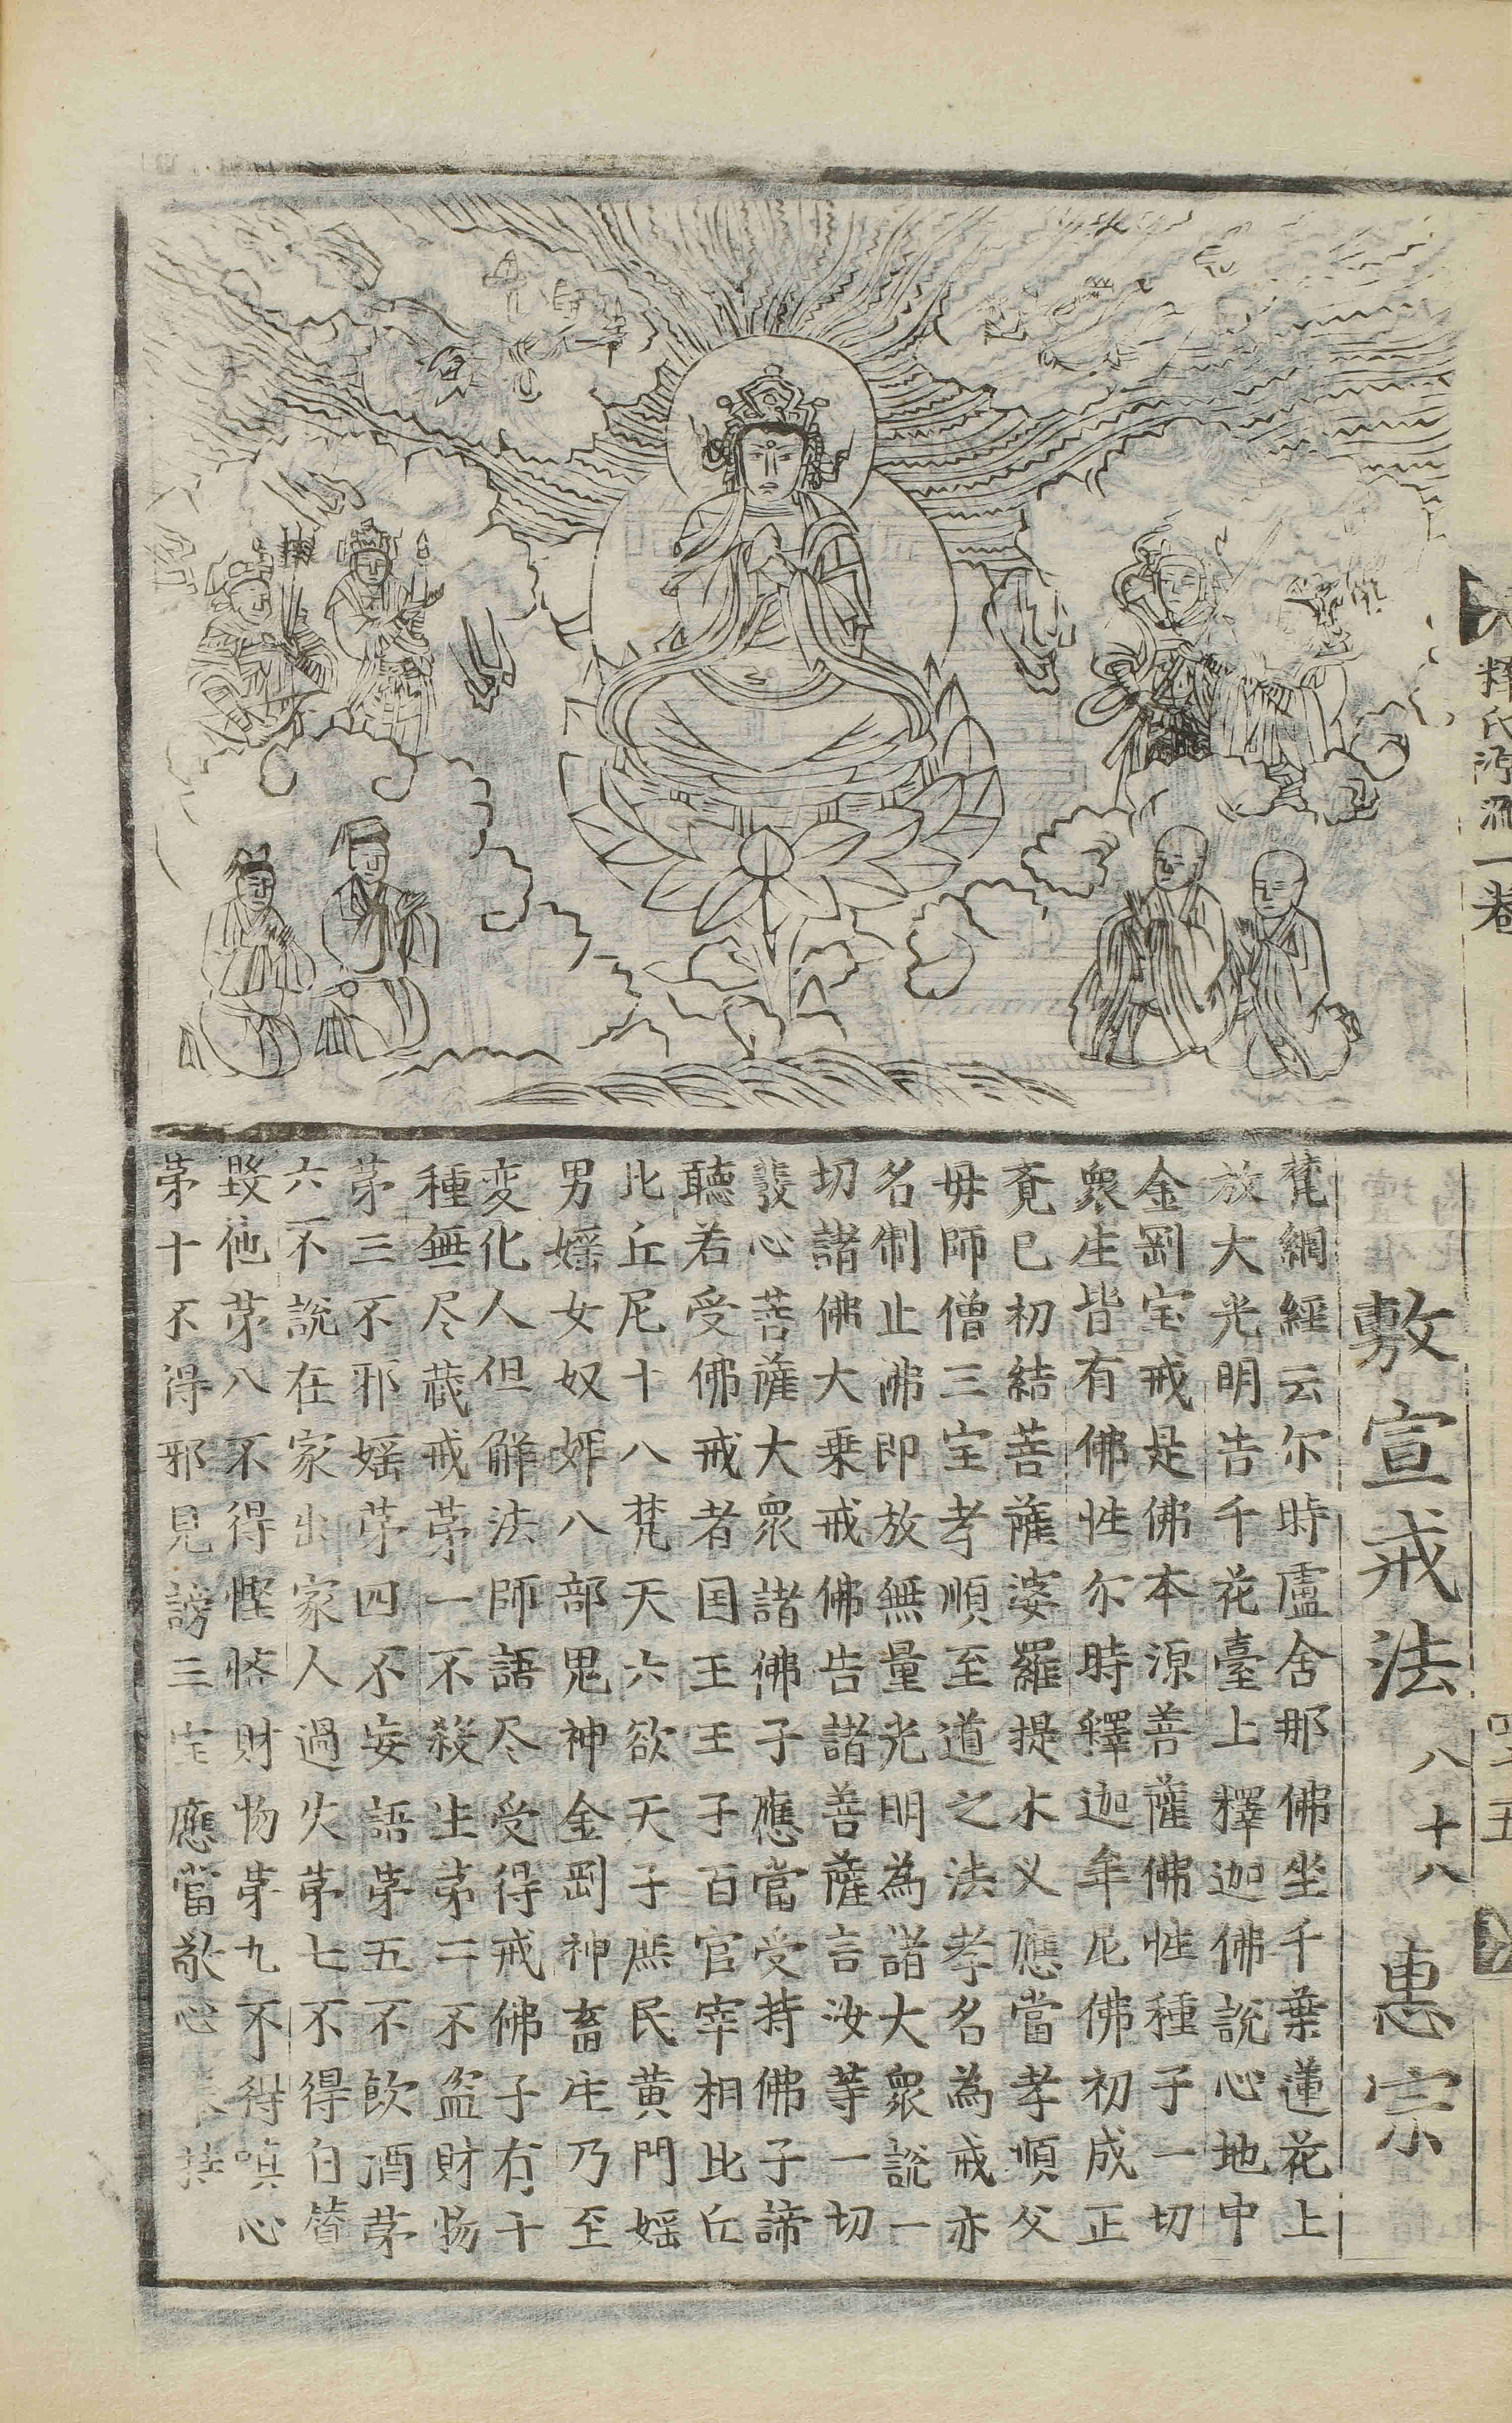 釋氏源流一巻
敷宣戒法 八十八 惠宗
梵網經云尔時盧舍那佛坐千葉蓮花上
放大光明告千花臺上釋迦佛說心地中
金剛宝戒是佛本源菩薩佛性種子一切
衆生皆有佛性尔時釋迦牟尼佛初成正
覔已初結菩薩婆羅提木义應當孝順父
毋師僧三宝孝順至道之法孝名為戒亦
名制止佛即放無量光明為諸大衆說一
切諸佛大乗戒佛告諸善薩言汝等一切
發心菩薩大衆諸佛子應當受持佛子諦
聽若受佛戒者国王王子百官宰相比丘
比丘尼十八梵天六欲天子庶民黄門婬
男婬女奴婢八部鬼神金剛神畜生乃至
変化人但解法師語尽受得戒佛子有十
種無尽蔵戒苐一不殺生苐二不盗財物
苐三不邪婬苐四不妄語苐五不飲酒苐
六不說在家出家人過失苐七不得自讃
毀他苐八不得慳悋財物苐九不得嗔心
苐十不得邪見謗三宝應當敬心